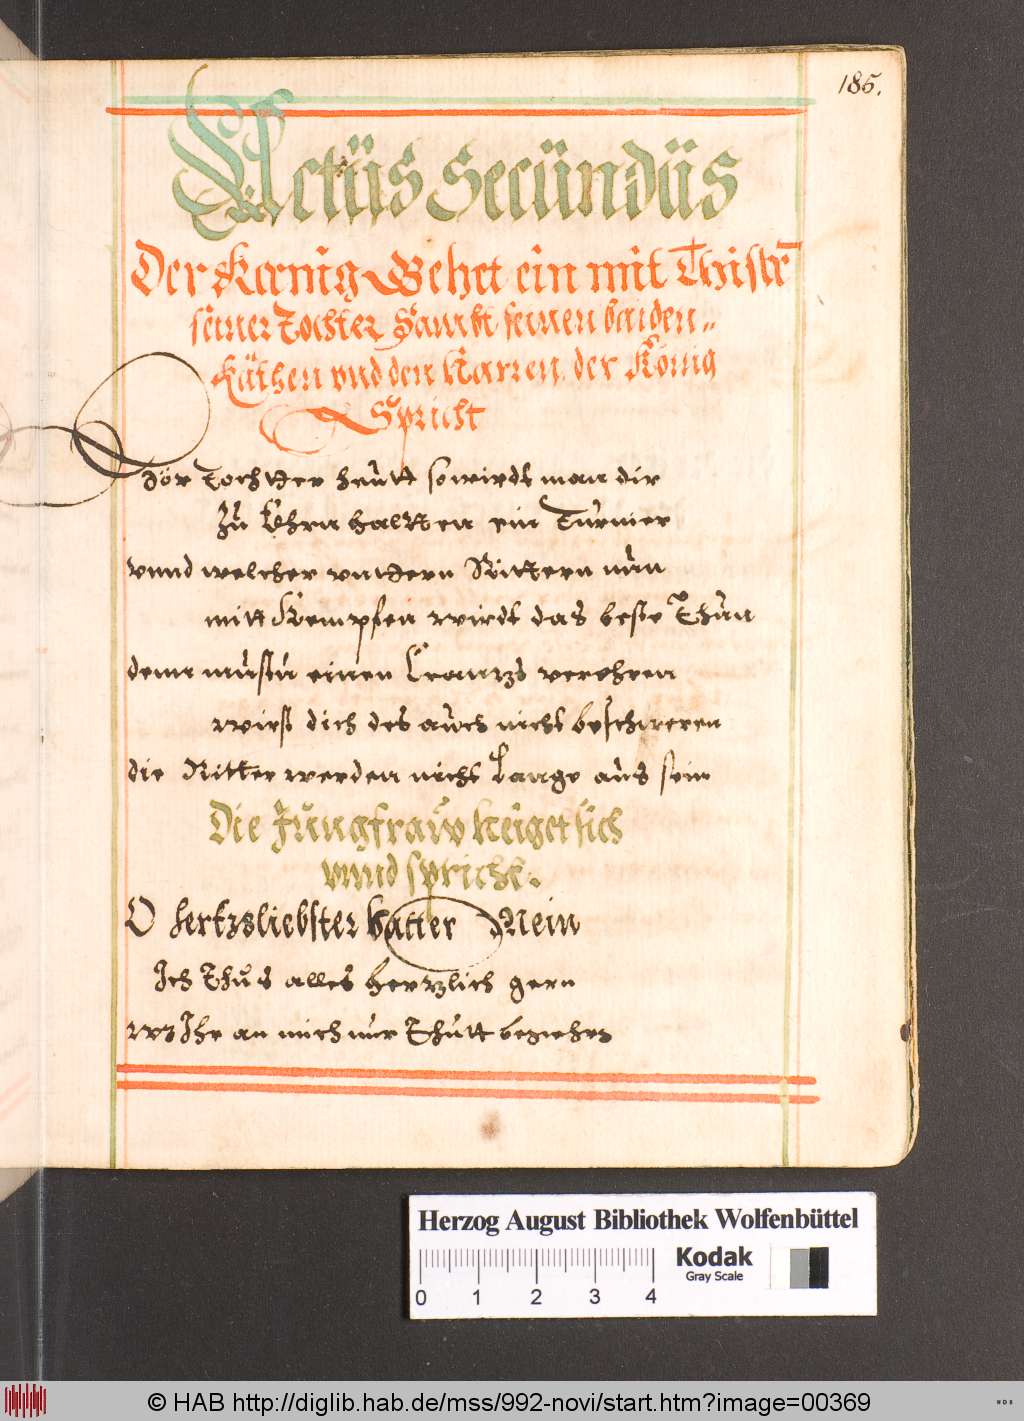 185.
Actüs Secündüs
Der Kœnig Gehet ein mit
seiner Tochter Sambt seinen baiden
Räthen vnd den Narren. der König
Spricht
Hör Tochtter heütt so wirdt man dir
Zu Ehrn haltten ein Turnier
vnnd welcher vntdern Rittern nün
mitt Kempfen wirdt das beste Thün
dem mustu einen Crantzs verehren
wirst dich des auch nicht beschweren
die Ritter werden nicht Lange aüs sein
Die Jüngfraw Neiget sich
vnnd spricht.
O Hertzsliebster Vatter Mein
Ich Thus alles Hertzlich gern
Ihr an mich nur Thutt
Herzog August Bibliothek Wolfenbüttel
Kodak
Gray Scale
0 1 2 3 4
© HAB http://diglib.hab.de/mss/992-novi/start.htm?image=00369